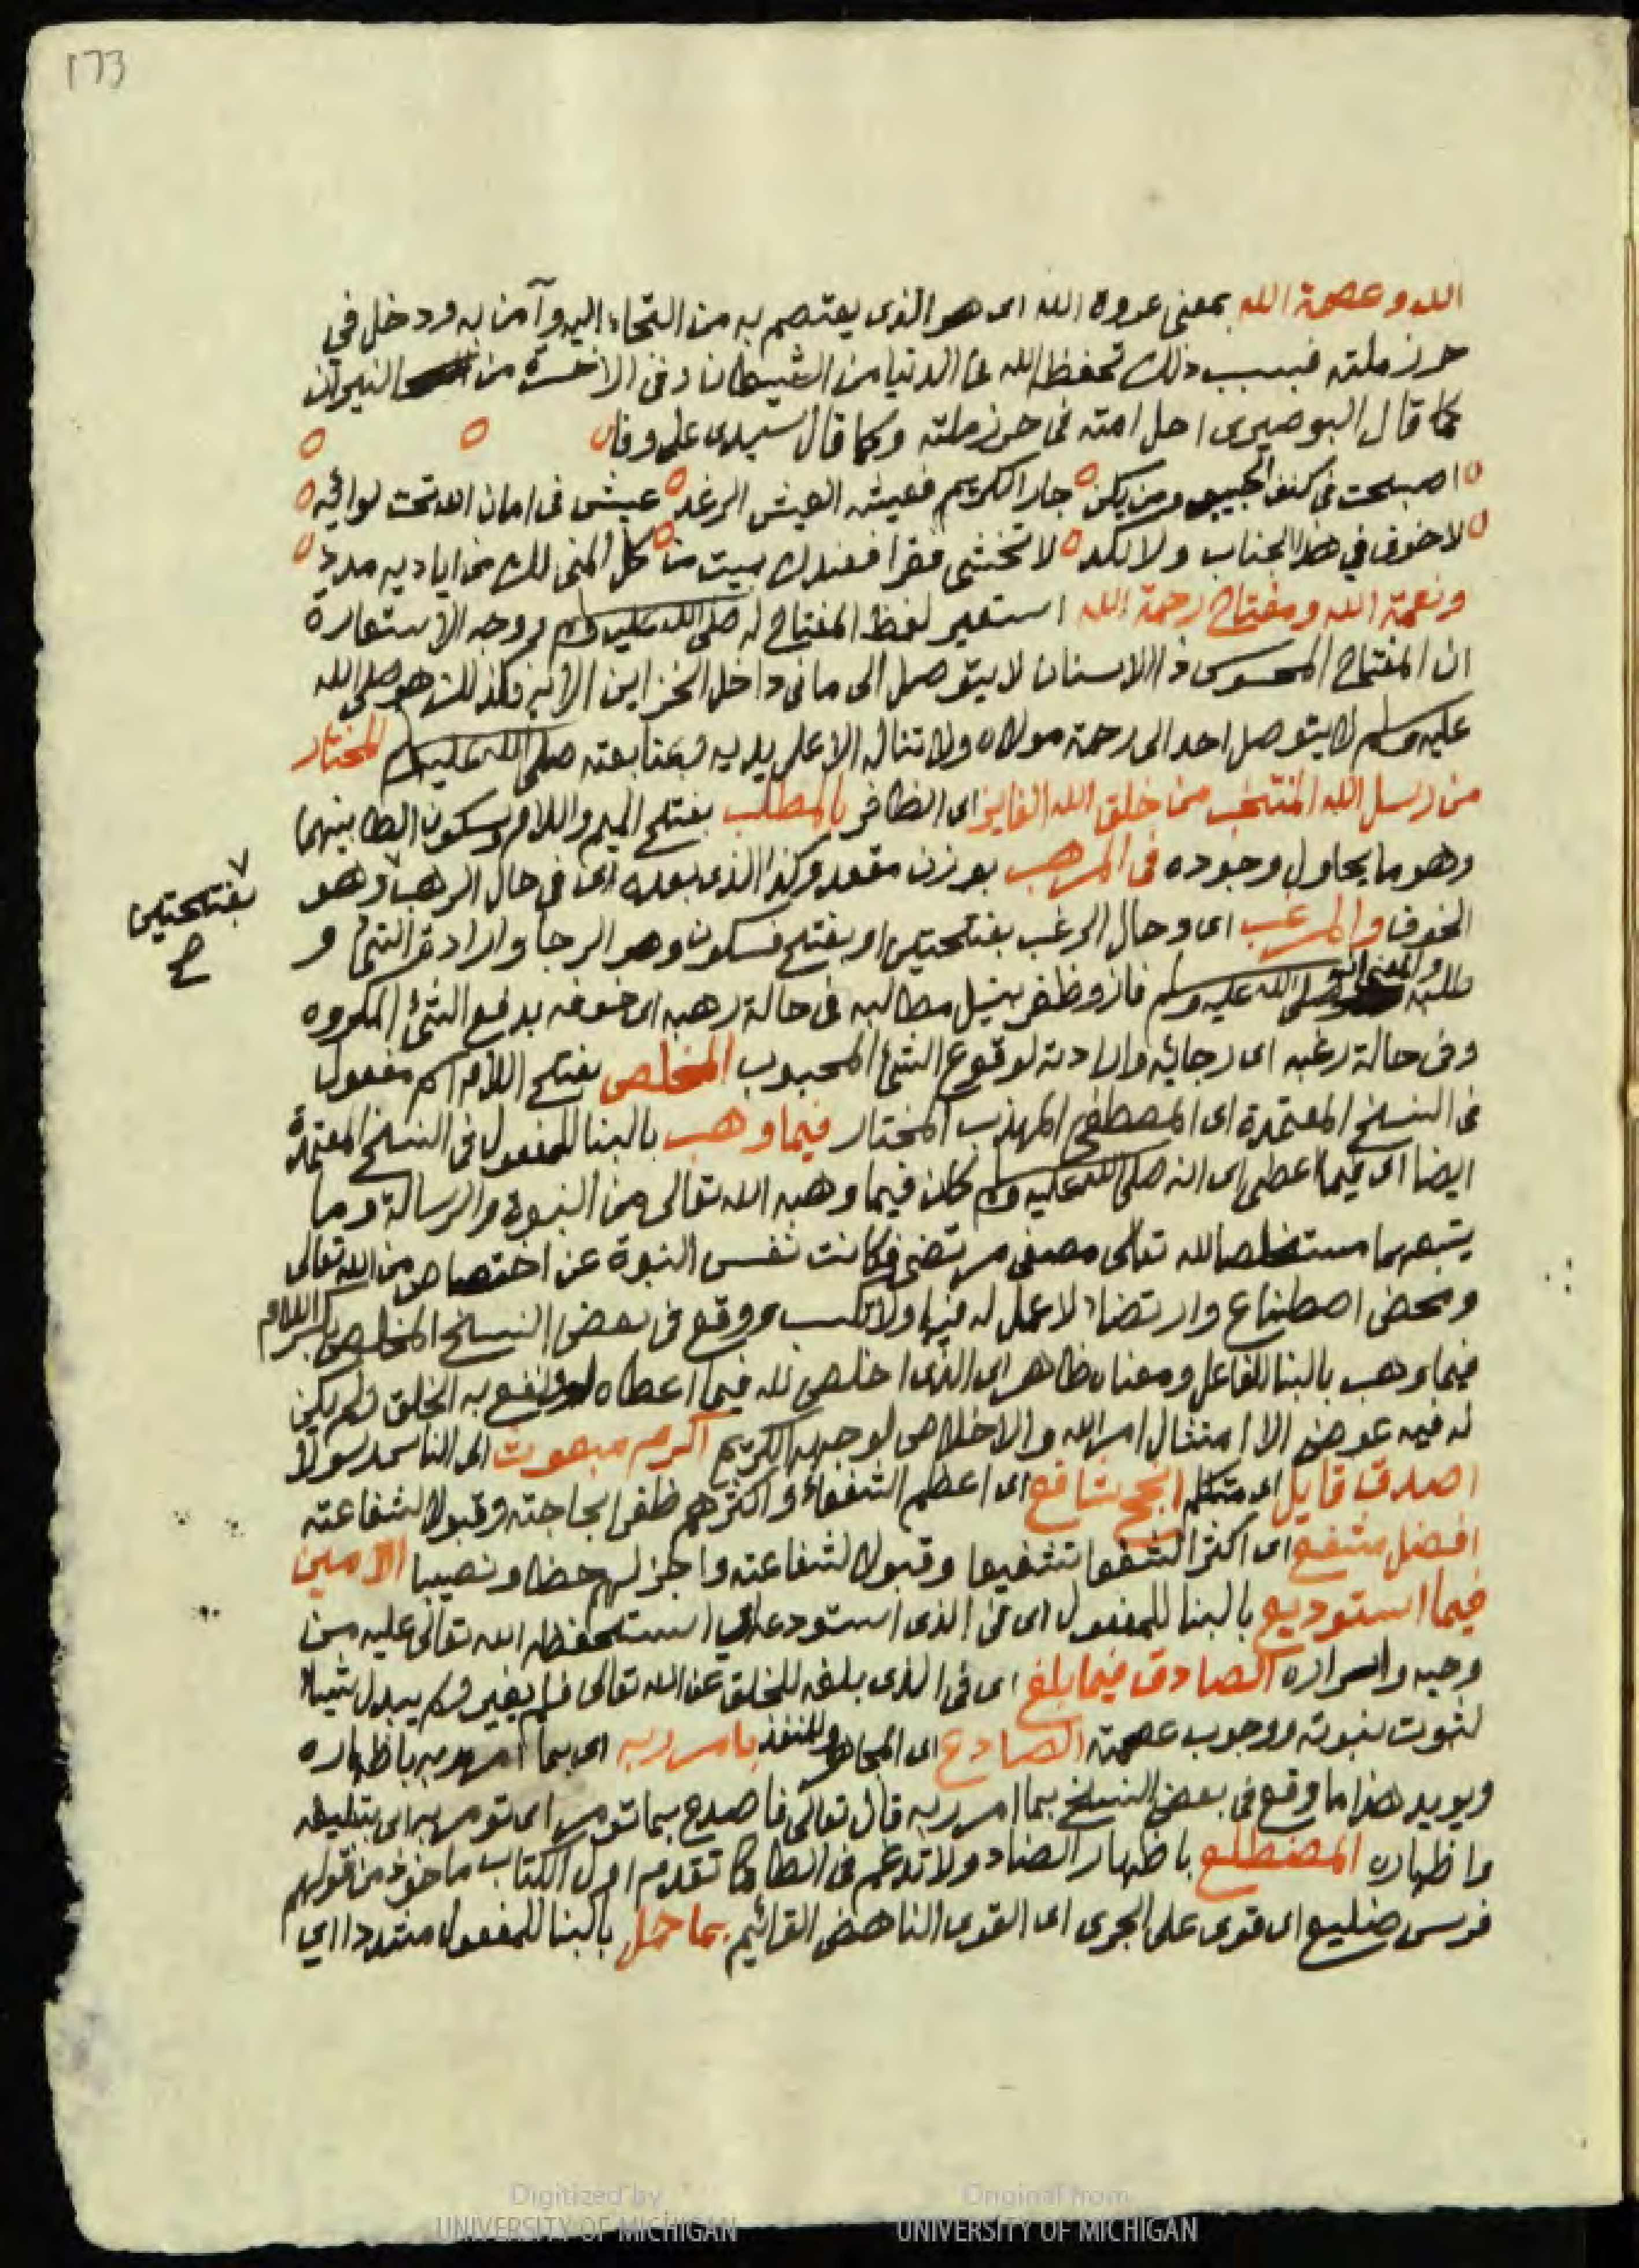 173
الله وعصمة الله بمعنى عروة الله اى هو الذى يعتصم به من التجاء اليه وآمن به ودخل في
حرز ملته فبسبب ذلك تحفظه الله فى الدنيا من الشيطان وفى الاخرة من النيران
كما قال البوصيرى احل امته فى حرز ملته وكما قال سيدى على وفا
اصبحت فى كنف الحبيب ومن يكن جار الكريم فعيشه العيش الرغد عيش فى امان الله تحت لوائه
لا خوف في هذا الجناب ولا نكد لا تختشى فقرا فعندك بيت من كل المنى لك من اياديه مدد
ونعمة الله ومفتاح رحمة الله استعير لفظ المفتاح له صلى الله عليه وسلم ووجه الاستعارة
ان المفتاح المحسوس ذا الاسنان لا يتوصل الى ما فى داخل الخزاين الا به وكذلك هو صلى الله
عليه وسلم لا يتوصل احد الى رحمة مولاه ولا تناله الا على يديه وبمتابعته صلى الله عليه وسلم المختار
من رسل الله المنتخب من خلق الله الفايز اى الظافر بالمطلب بفتح الميم واللام وسكون الطا بينهما
وهو ما يحاول وجوده فى المرهب بوزن مقعد وكذا الذى بعده اى فى حال الرهب وهو
بفتحتين
صح
الخوف والمرغب اى وحال الرغب بفتحتين او بفتح فسكون وهو الرجا وارادة الشئ و
طلبه والمعنى انه صلى الله عليه وسلم فاز وظفر بنيل مطالبه فى حالة رهبه اى خوفه بدفع الشئ المكروه
وفى حالة رغبه اى رجائه وارادته لوقوع الشئ المحبوب المخلص بفتح اللام اسم مفعول
فى النسخ المعتمدة اى المصطفى المهذب المختار فيما وهب بالبنا للمفعول فى النسخ المعتمدة
ايضا اى فيما اعطى اى انه صلى الله عليه وسلم كان فيما وهبه الله تعالى من النبوة والرسالة وما
يتبعهما مستخلصا لله تعالى مصفى مرتضى فكانت نفس النبوة عن اختصاص من الله تعالى
ومحض اصطناع وارتضاء لا عمل له فيها ولا تكسب ووقع فى بعض النسخ المخلص بكسر اللام
فيما وهب بالبنا للفاعل ومعناه ظاهر اى الذى اخلص لله فيما اعطاه ونفع به الخلق ولم يكن
له فيه عوض الا امتثال امر الله والاخلاص لوجهه الكريم اكرم مبعوث الى الناس رسولا
اصدق قايل اى متكلم انجح شافع اى اعظم الشفعاء واكثرهم ظفرا بحاجته وقبولا لشفاعته
افضل مشفع اى اكثر الشفعا تشفيعا وقبولا لشفاعته واجزلهم حظا ونصيبا الامين
فيما استودع بالبنا للمفعول اى فى الذى استودعه اى استحفظه الله تعالى عليه من
وحيه واسراره الصادق فيما بلغ اى فى الذى بلغه للخلق عن الله تعالى فلم يغير ولم يبدل شيئا
لثبوت نبوته ووجوب عصمته الصادع اى المجاهر والمنفذ بامر ربه اى بما امره ربه باظهاره
ويويد هذا ما وقع فى بعض النسخ بما امر ربه قال تعالى فاصدع بما تومر اى تومر به اى بتبليغه
واظهاره المضطلع باظهار الضاد ولا تدغم فى الطا كما تقدم اول الكتاب ماخوذ من قولهم
فرس ضليع اى قوى على الجرى اى القوى الناهض القائم بما حمل بالبنا للمفعول مشددا اي
Digitized by
UNIVERSITY OF MICHIGAN
Original from
UNIVERSITY OF MICHIGAN